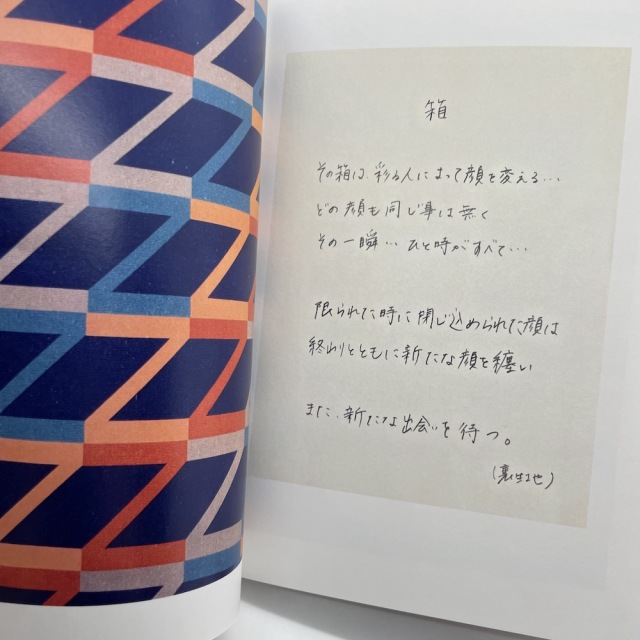 箱
その箱は、彩る人によって顔を変える…
どの顔も同じ事は無く
その一瞬… ひと時がすべて…
限られた時に閉じ込められた顔は
終わりとともに新たな顔を纏い
また、新たな出会いを待つ。
(裏生地)